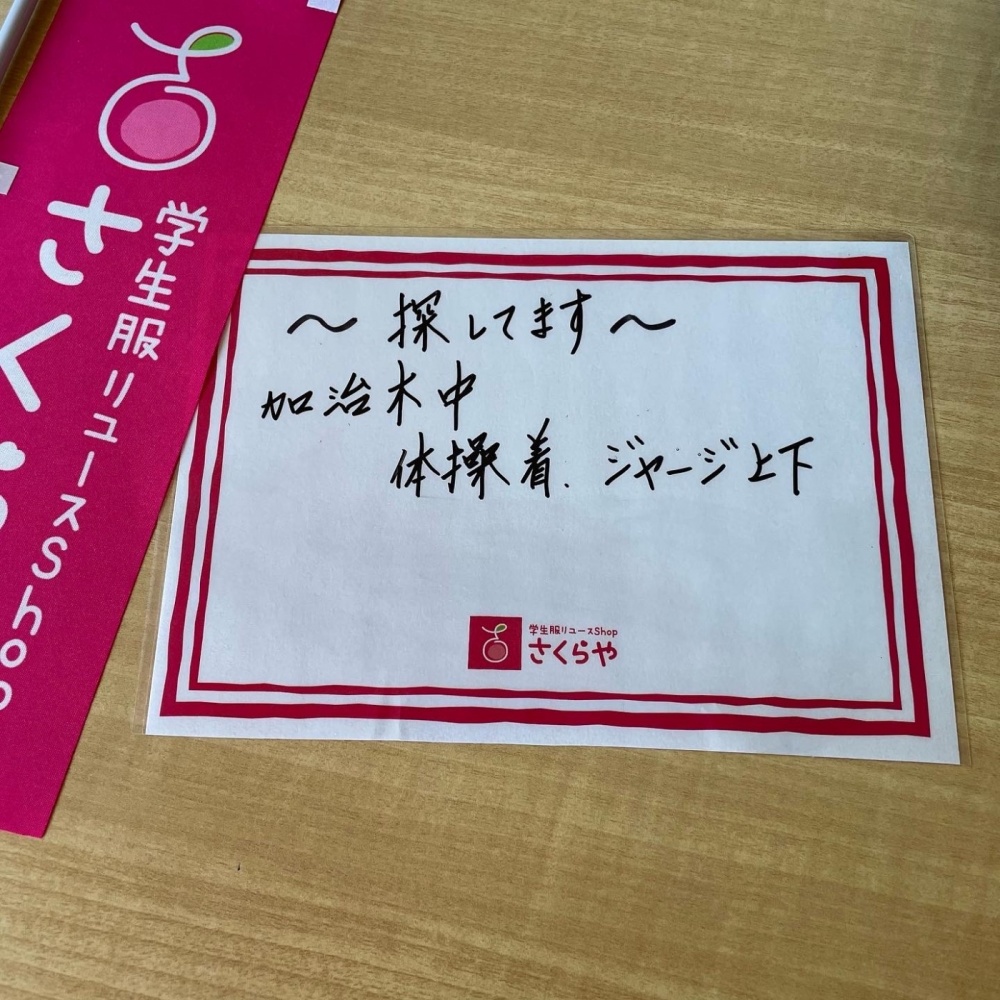 学生服リユースShop
さくら
〜 探してます 〜
加治木中
体操着、ジャージ上下
学生服リユースShop
さくらや